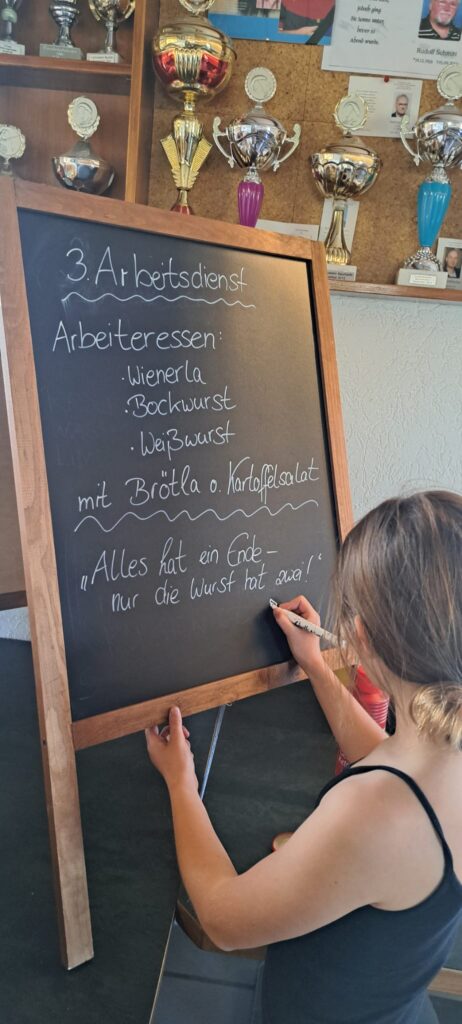 Rudolf
3. Arbeitsdienst
Arbeiteressen:
· Wienerla
· Bockwurst
· Weißwurst
mit Brötla o. Kartoffelsalat
„Alles hat ein Ende –
nur die Wurst hat zwei!“